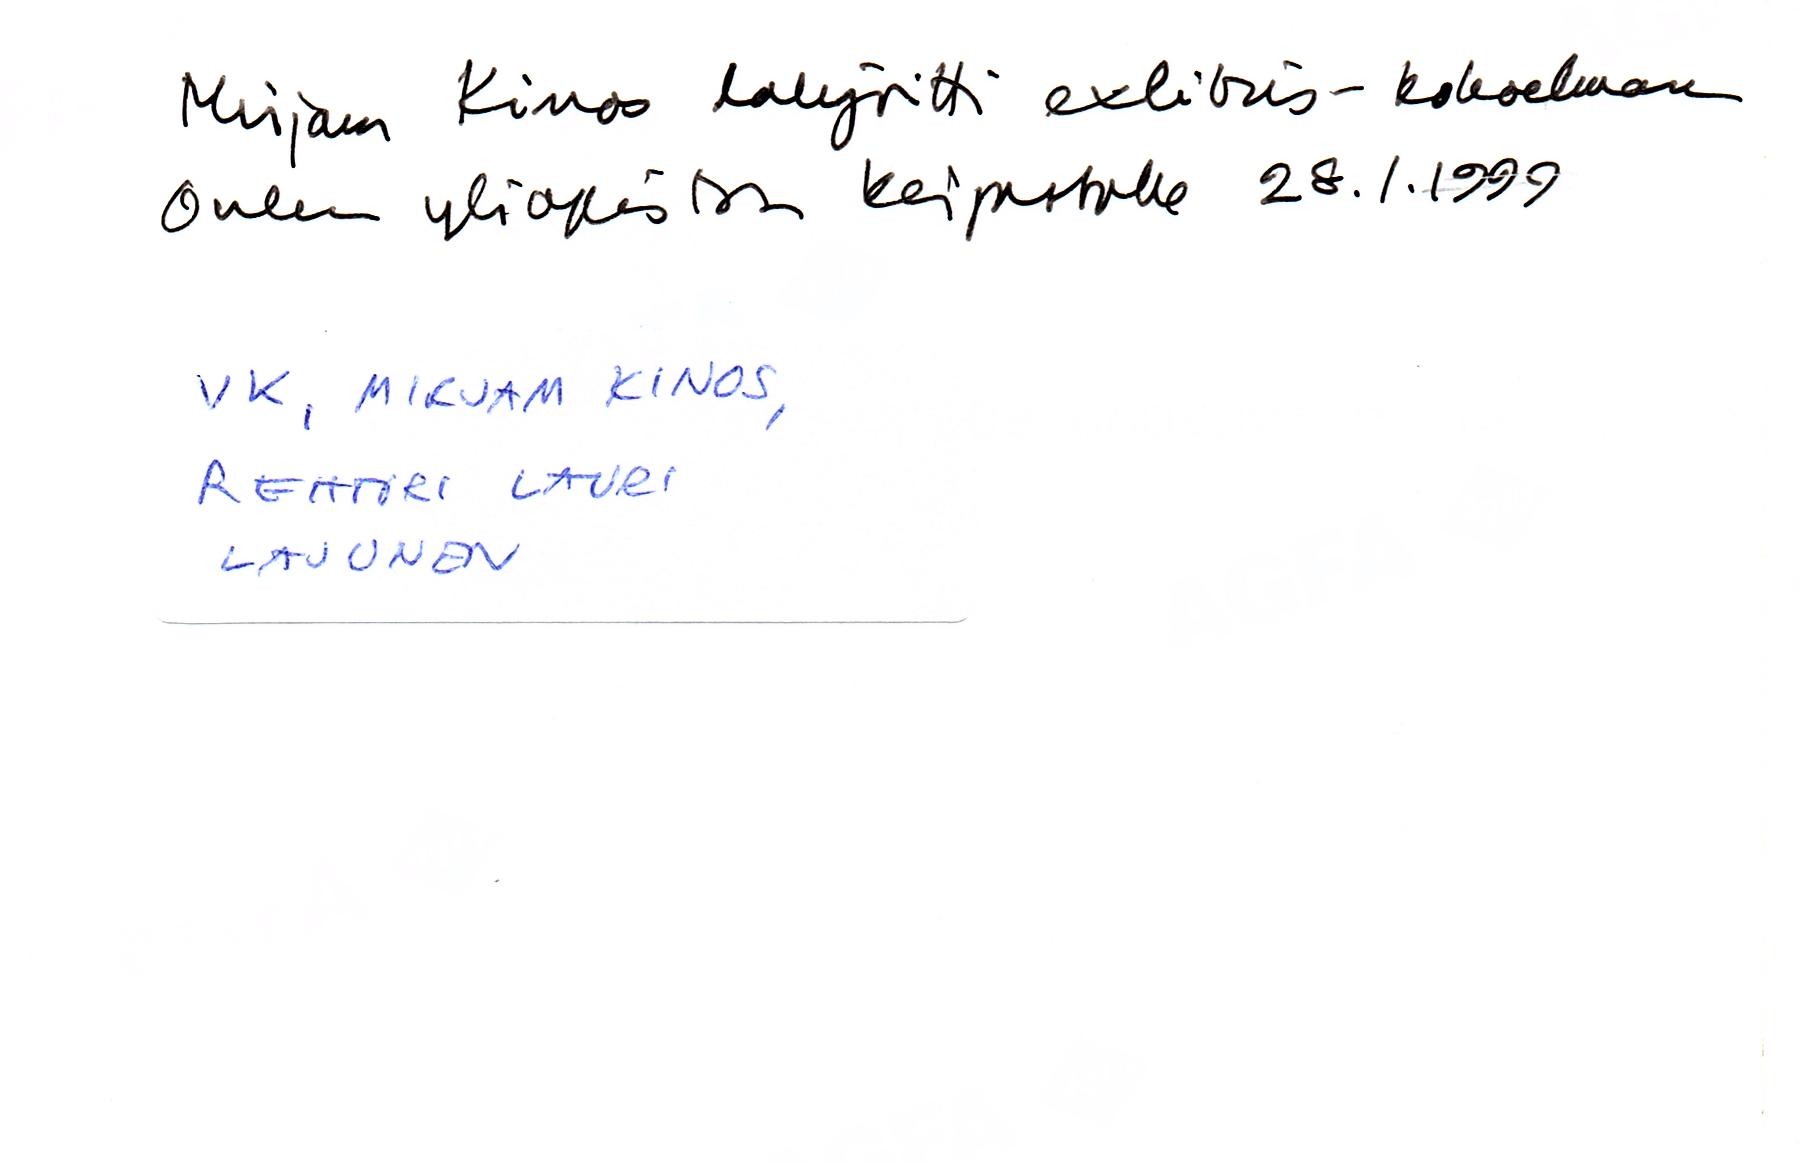 Mirjam Kinos lahjoitti exlibris-kokoelman
Oulun yliopiston kirjastolle 28.1.1999
VK, MIRJAM KINOS,
REHTORI LAURI
LAJUNEN
AGFA